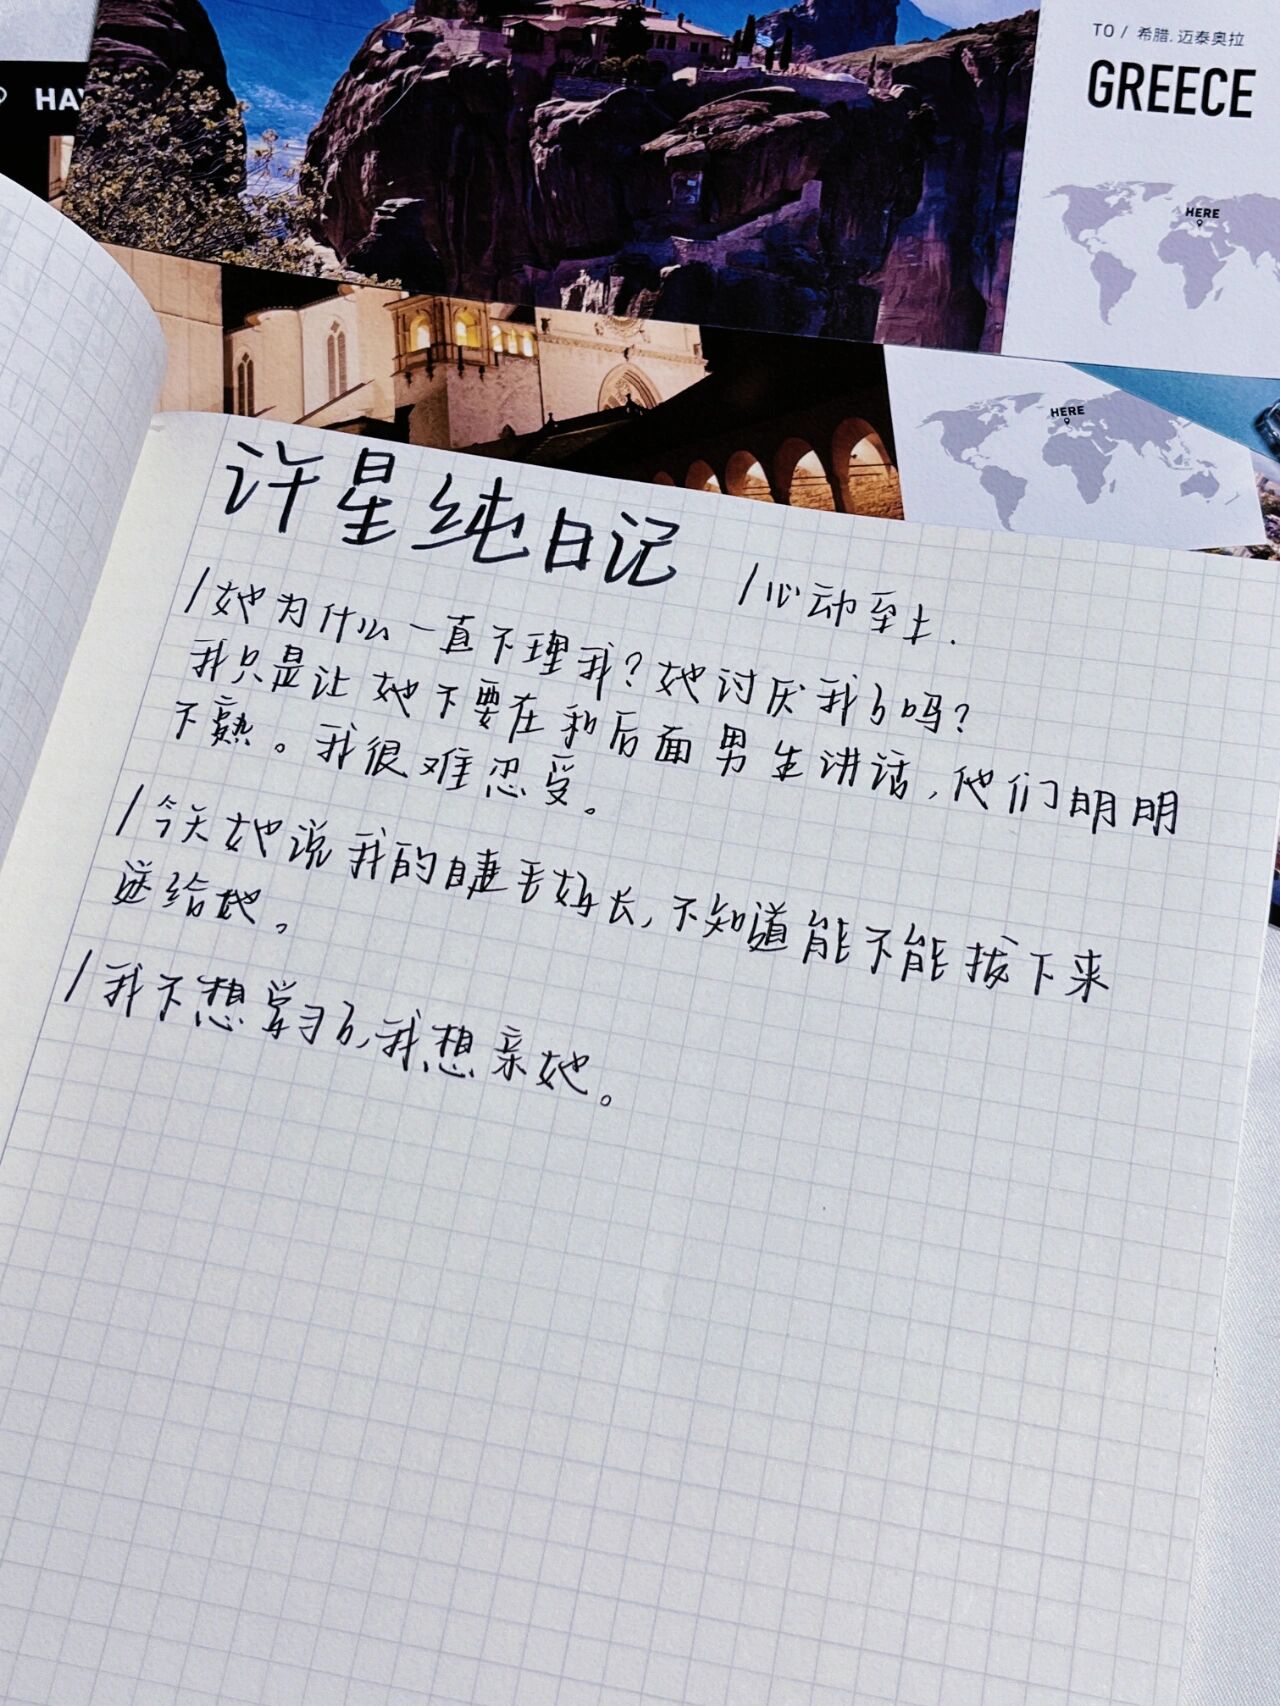 HAV
TO / 希腊.迈泰奥拉
GREECE
HERE
HERE
许星纯日记 /心动至上.
/她为什么一直不理我?她讨厌我了吗?
我只是让她不要在和后面男生讲话,他们明明
不熟。我很难忍受。
/今天她说我的睫毛好长,不知道能不能拔下来
送给她。
/我不想学习了,我想亲她。